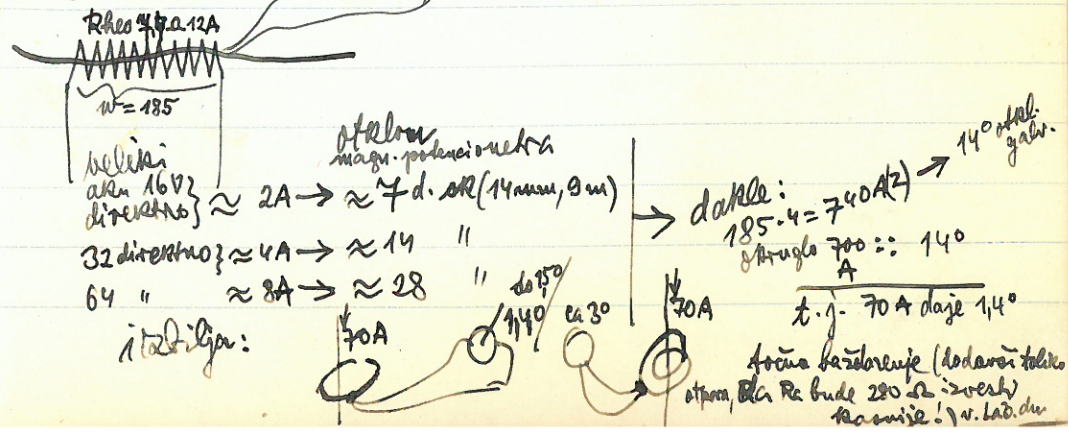 Rheo 12A
w = 185
veliki
aku 16V } direktno } ≈ 2A → ≈ 7 d. sk (14mm, 9m)
otklon
magn. potenciometra
32 direktno } ≈ 4A → ≈ 14 "
64 " ≈ 8A → ≈ 28 "
→ dakle:
185·4 = 740A(2) → 14° otkl. galv.
okruglo 700 A :: 14°
t.j. 70 A daje 1,4°
70A
1,4°
ca 3°
70A
točno baždarenje (dodavši toliko
otpora, da Ra bude 280 Ω izvesti
kasnije!) v. Lab. dn